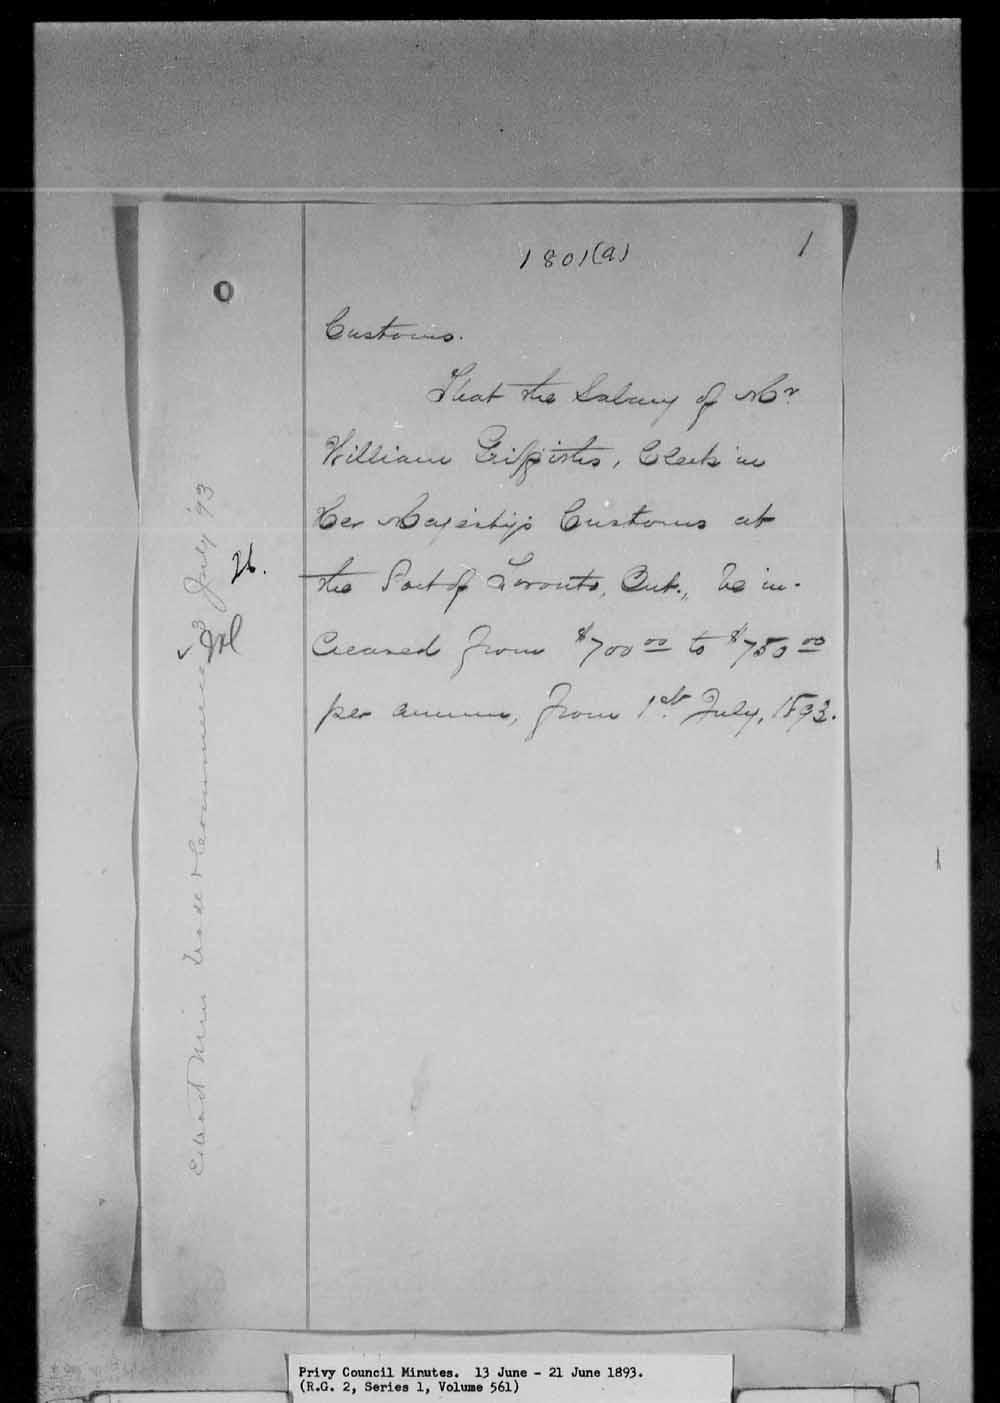 1801(a)
1
Customs.
That the Salary of Mr
William Griffiths, Clerk in
Her Majesty's Customs at
the Port of Toronto, Ont., be in-
creased from $700 00 to $750 00
per annum, from 1st July, 1893.
26.
Min Trade & Commerce 3 July '93
Privy Council Minutes. 13 June - 21 June 1893.
(R.G. 2, Series 1, Volume 561)